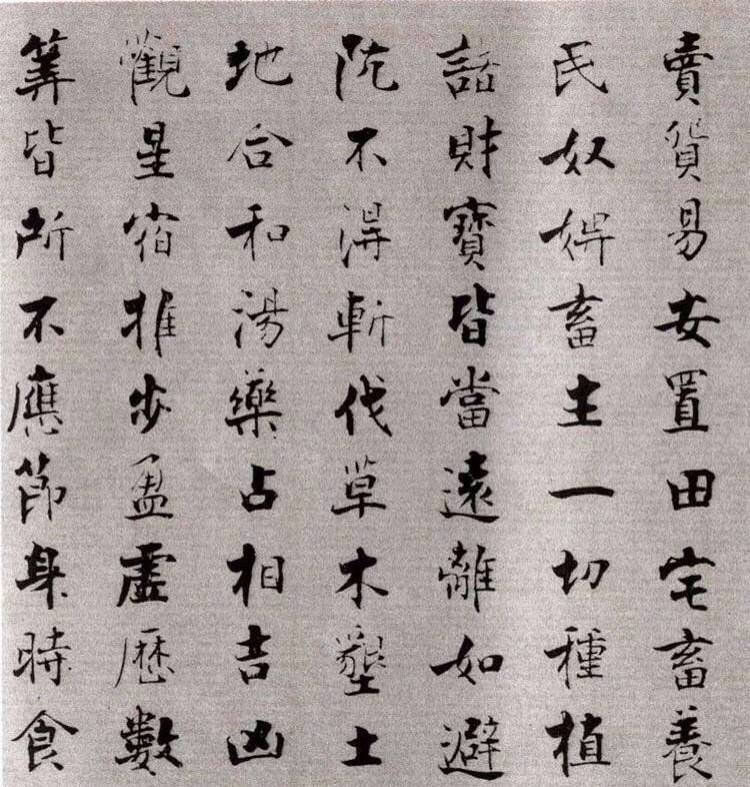 賣貿易安置田宅畜養
民奴婢畜生一切種植
諸財寶皆當遠離如避
阬不得斬伐草木墾土
地合和湯藥占相吉凶
觀星宿推步盈虛曆數
筭皆所不應節身時食